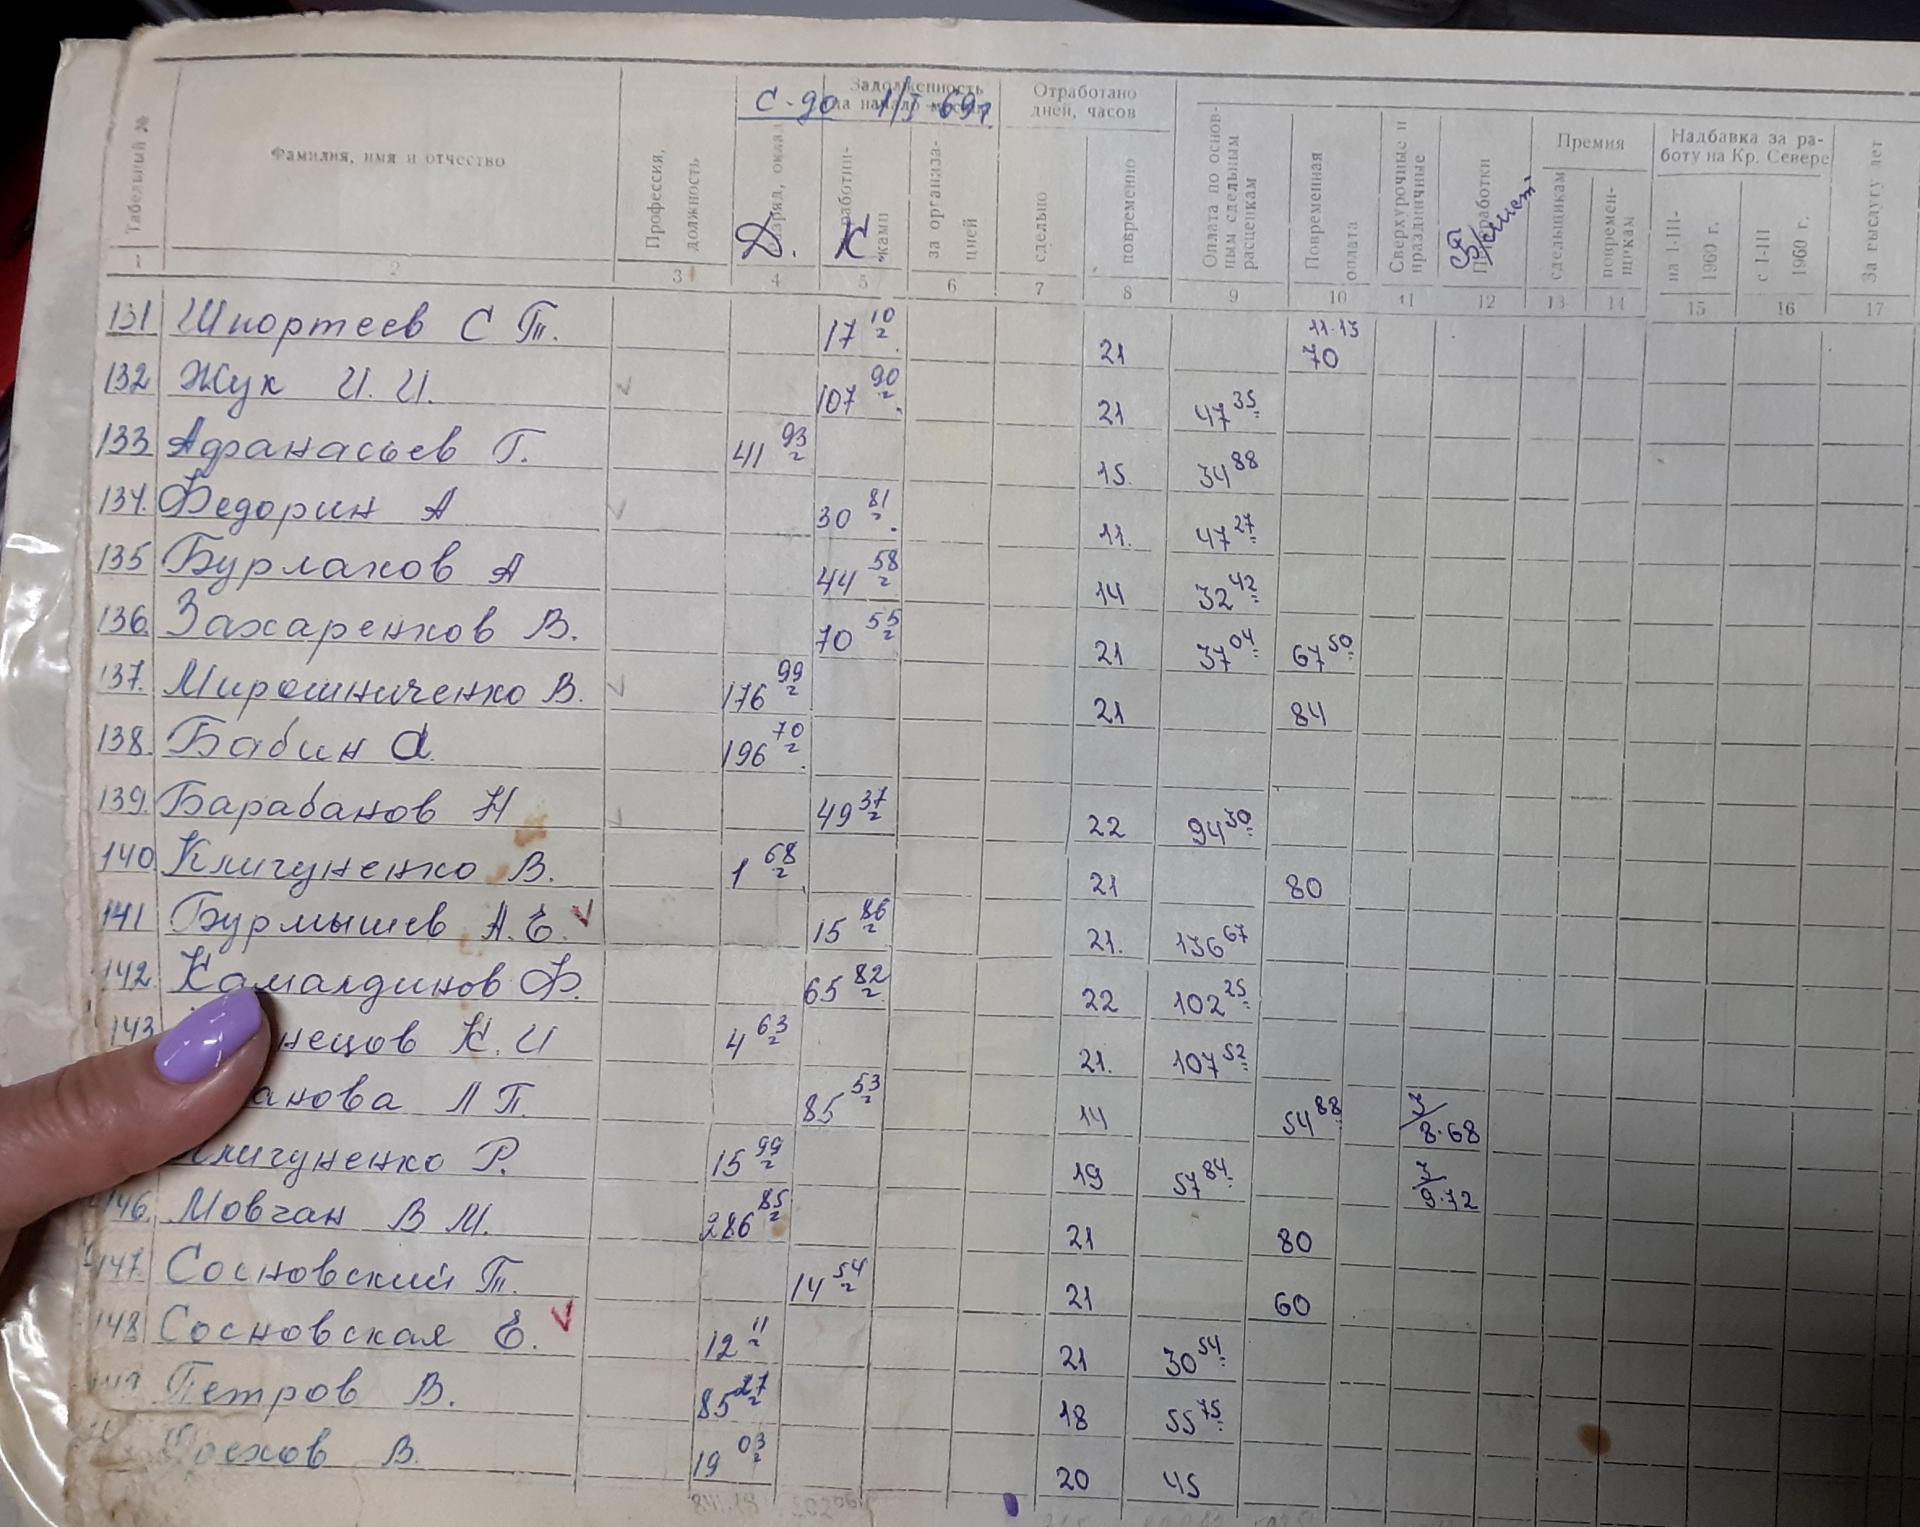 С-до 1/I-69г
Задолженность на начало месяца
Отработано дней, часов
Табельный №
Фамилия, имя и отчество
Профессия, должность
Разряд, оклад
Д.
К
за организацией
сдельно
повременно
Оплата по основным сдельным расценкам
Повременная оплата
Сверхурочные и праздничные
Премия
сдельщикам
повременщикам
Надбавка за работу на Кр. Севере
на I-III-1960 г.
с I-III 1960 г.
За выслугу лет
1 2 3 4 5 6 7 8 9 10 11 12 13 14 15 16 17
131 Шпортеев С Т. 17 10 21 11.13 70
132 Жук И. И. 107 90 21 47 35
133 Афанасьев Г. 41 93 15 34 88
134. Федорин А 30 81 11. 47 27
135 Бурлаков А 44 58 14 32 42
136. Захаренков В. 70 55 21 37 04 67 50
137. Мирошниченко В. 176 99 21 84
138. Бабин А 196 70
139. Барабанов Н 49 37 22 94 30
140. Кличуненко В. 1 68 21 80
141 Бурмышев А. Е. 15 86 21. 136 67
142 Камалдинов Ф. 65 82 22 102 25
143 нецов К. И 4 63 21. 107 52
анова Л П. 85 53 14 54 88 8.68
личуненко Р. 15 99 19 57 84 9.72
146. Мовчан В М. 286 85 21 80
147. Сосновский Т. 14 54 21 60
148 Сосновская Е. 12 11 21 30 54
149 Петров В. 85 27 18 55 75
В. 19 03 20 45